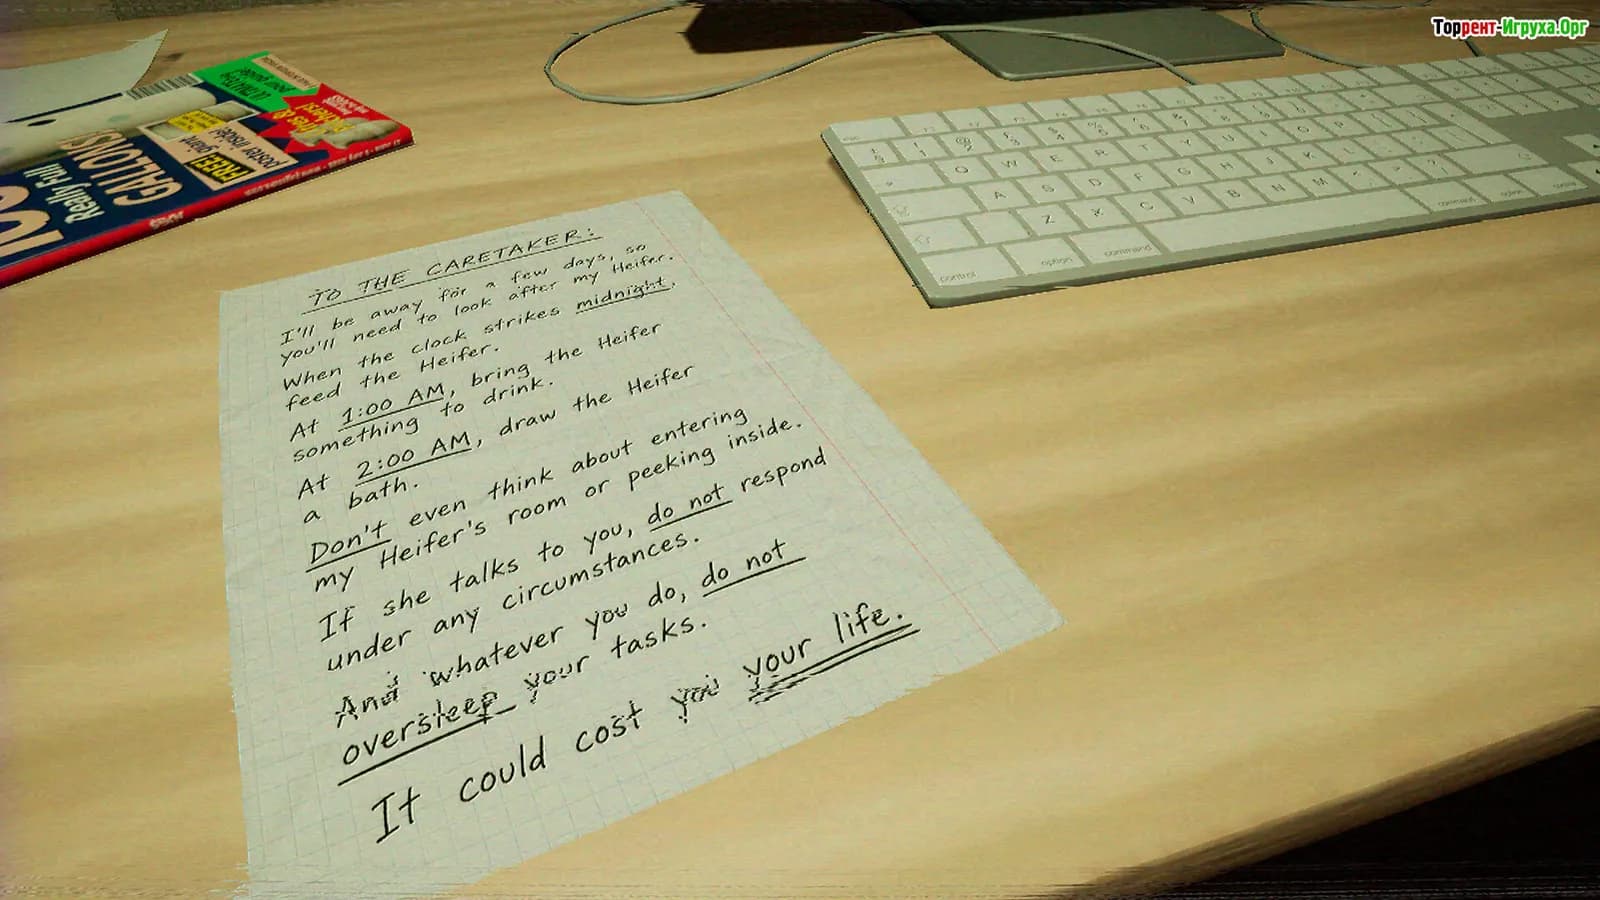 Торрент-Игруха.Орг
FREE!
giant
poster inside!
Really Full
GALLONS!
TO THE CARETAKER:
I'll be away for a few days, so
you'll need to look after my Heifer.
When the clock strikes midnight,
feed the Heifer.
At 1:00 AM, bring the Heifer
something to drink.
At 2:00 AM, draw the Heifer
a bath.
Don't even think about entering
my Heifer's room or peeking inside.
If she talks to you, do not respond
under any circumstances.
And whatever you do, do not
oversleep your tasks.
It could cost you your life.
Q W E R T Y U I O P
A S D F G H J K L
Z X C V B N M < > ?
control option command command option control